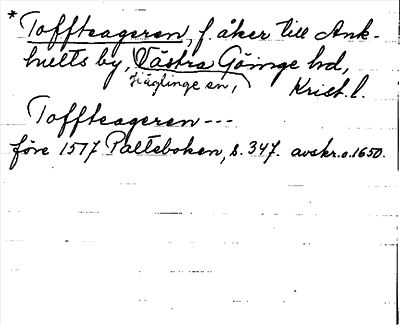 *Toffteageren, f. åker till Ank-
hults by, Västra Göinge hd,
Häglinge sn, Krist. l.
Toffteageren ---
före 1517 Palteboken, s. 347. avskr. o. 1650.